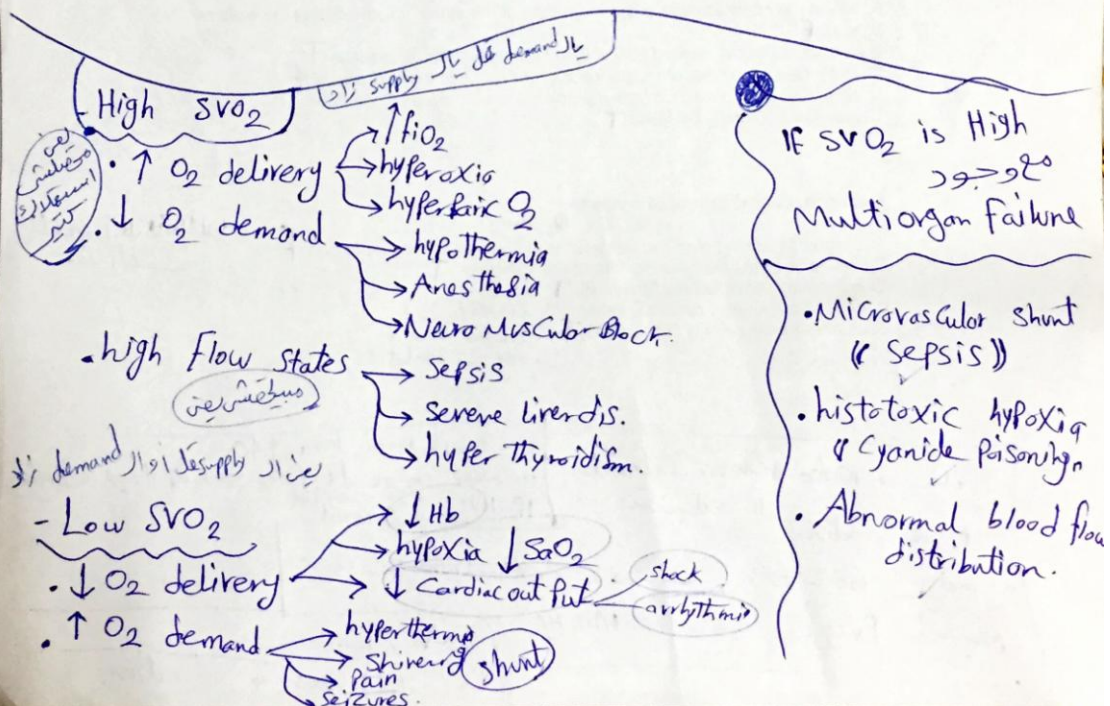 يا الـ demand قل يا الـ supply زاد
- High SVO2
يعني
مبيحصلش
استهلاك
كتير
. ↑ O2 delivery
↑ fiO2
hyperoxia
hyperbaric O2
. ↓ O2 demand
hypothermia
Anesthesia
Neuro Muscular Block.
. high Flow States
sepsis
severe liver dis.
hyper thyroidism.
يعني الـ supply قل او الـ demand زاد
- Low SVO2
. ↓ O2 delivery
↓ Hb
hypoxia ↓ SaO2
↓ Cardiac out Put
shock
arrhythmia
. ↑ O2 demand
hyperthermia
Shivering
shunt
Pain
Seizures.
IF SVO2 is High
مع وجود
Multiorgan Failure
. Microvascular shunt
(( Sepsis ))
. histotoxic hypoxia
(( Cyanide Poisoning
. Abnormal blood flow
distribution.